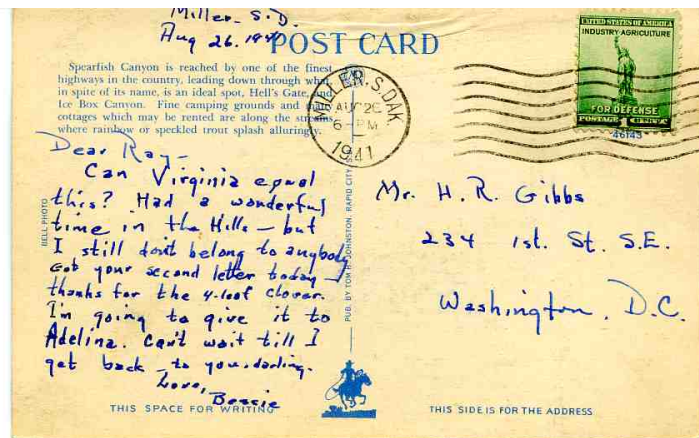 Miller. S.D.
Aug 26. 1941
POST CARD
Spearfish Canyon is reached by one of the finest
highways in the country, leading down through what,
in spite of its name, is an ideal spot, Hell's Gate, and
Ice Box Canyon. Fine camping grounds and
cottages which may be rented are along the streams
where rainbow or speckled trout splash alluringly.
MILLER, S. DAK
AUG 26
6 - PM
1941
UNITED STATES OF AMERICA
INDUSTRY·AGRICULTURE
FOR DEFENSE
POSTAGE 1 CENT
46143
Dear Ray—
Can Virginia equal
this? Had a wonderful
time in the Hills — but
I still don't belong to anybody
Got your second letter today —
thanks for the 4-leaf clover.
I'm going to give it to
Adelina. Can't wait till I
get back — to you, darling.
Love,
Bessie
Mr. H. R. Gibbs
234 1st. St. S.E.
Washington, D.C.
BELL PHOTO
PUB. BY TOM H. JOHNSTON, RAPID CITY, S.
THIS SPACE FOR WRITING
THIS SIDE IS FOR THE ADDRESS